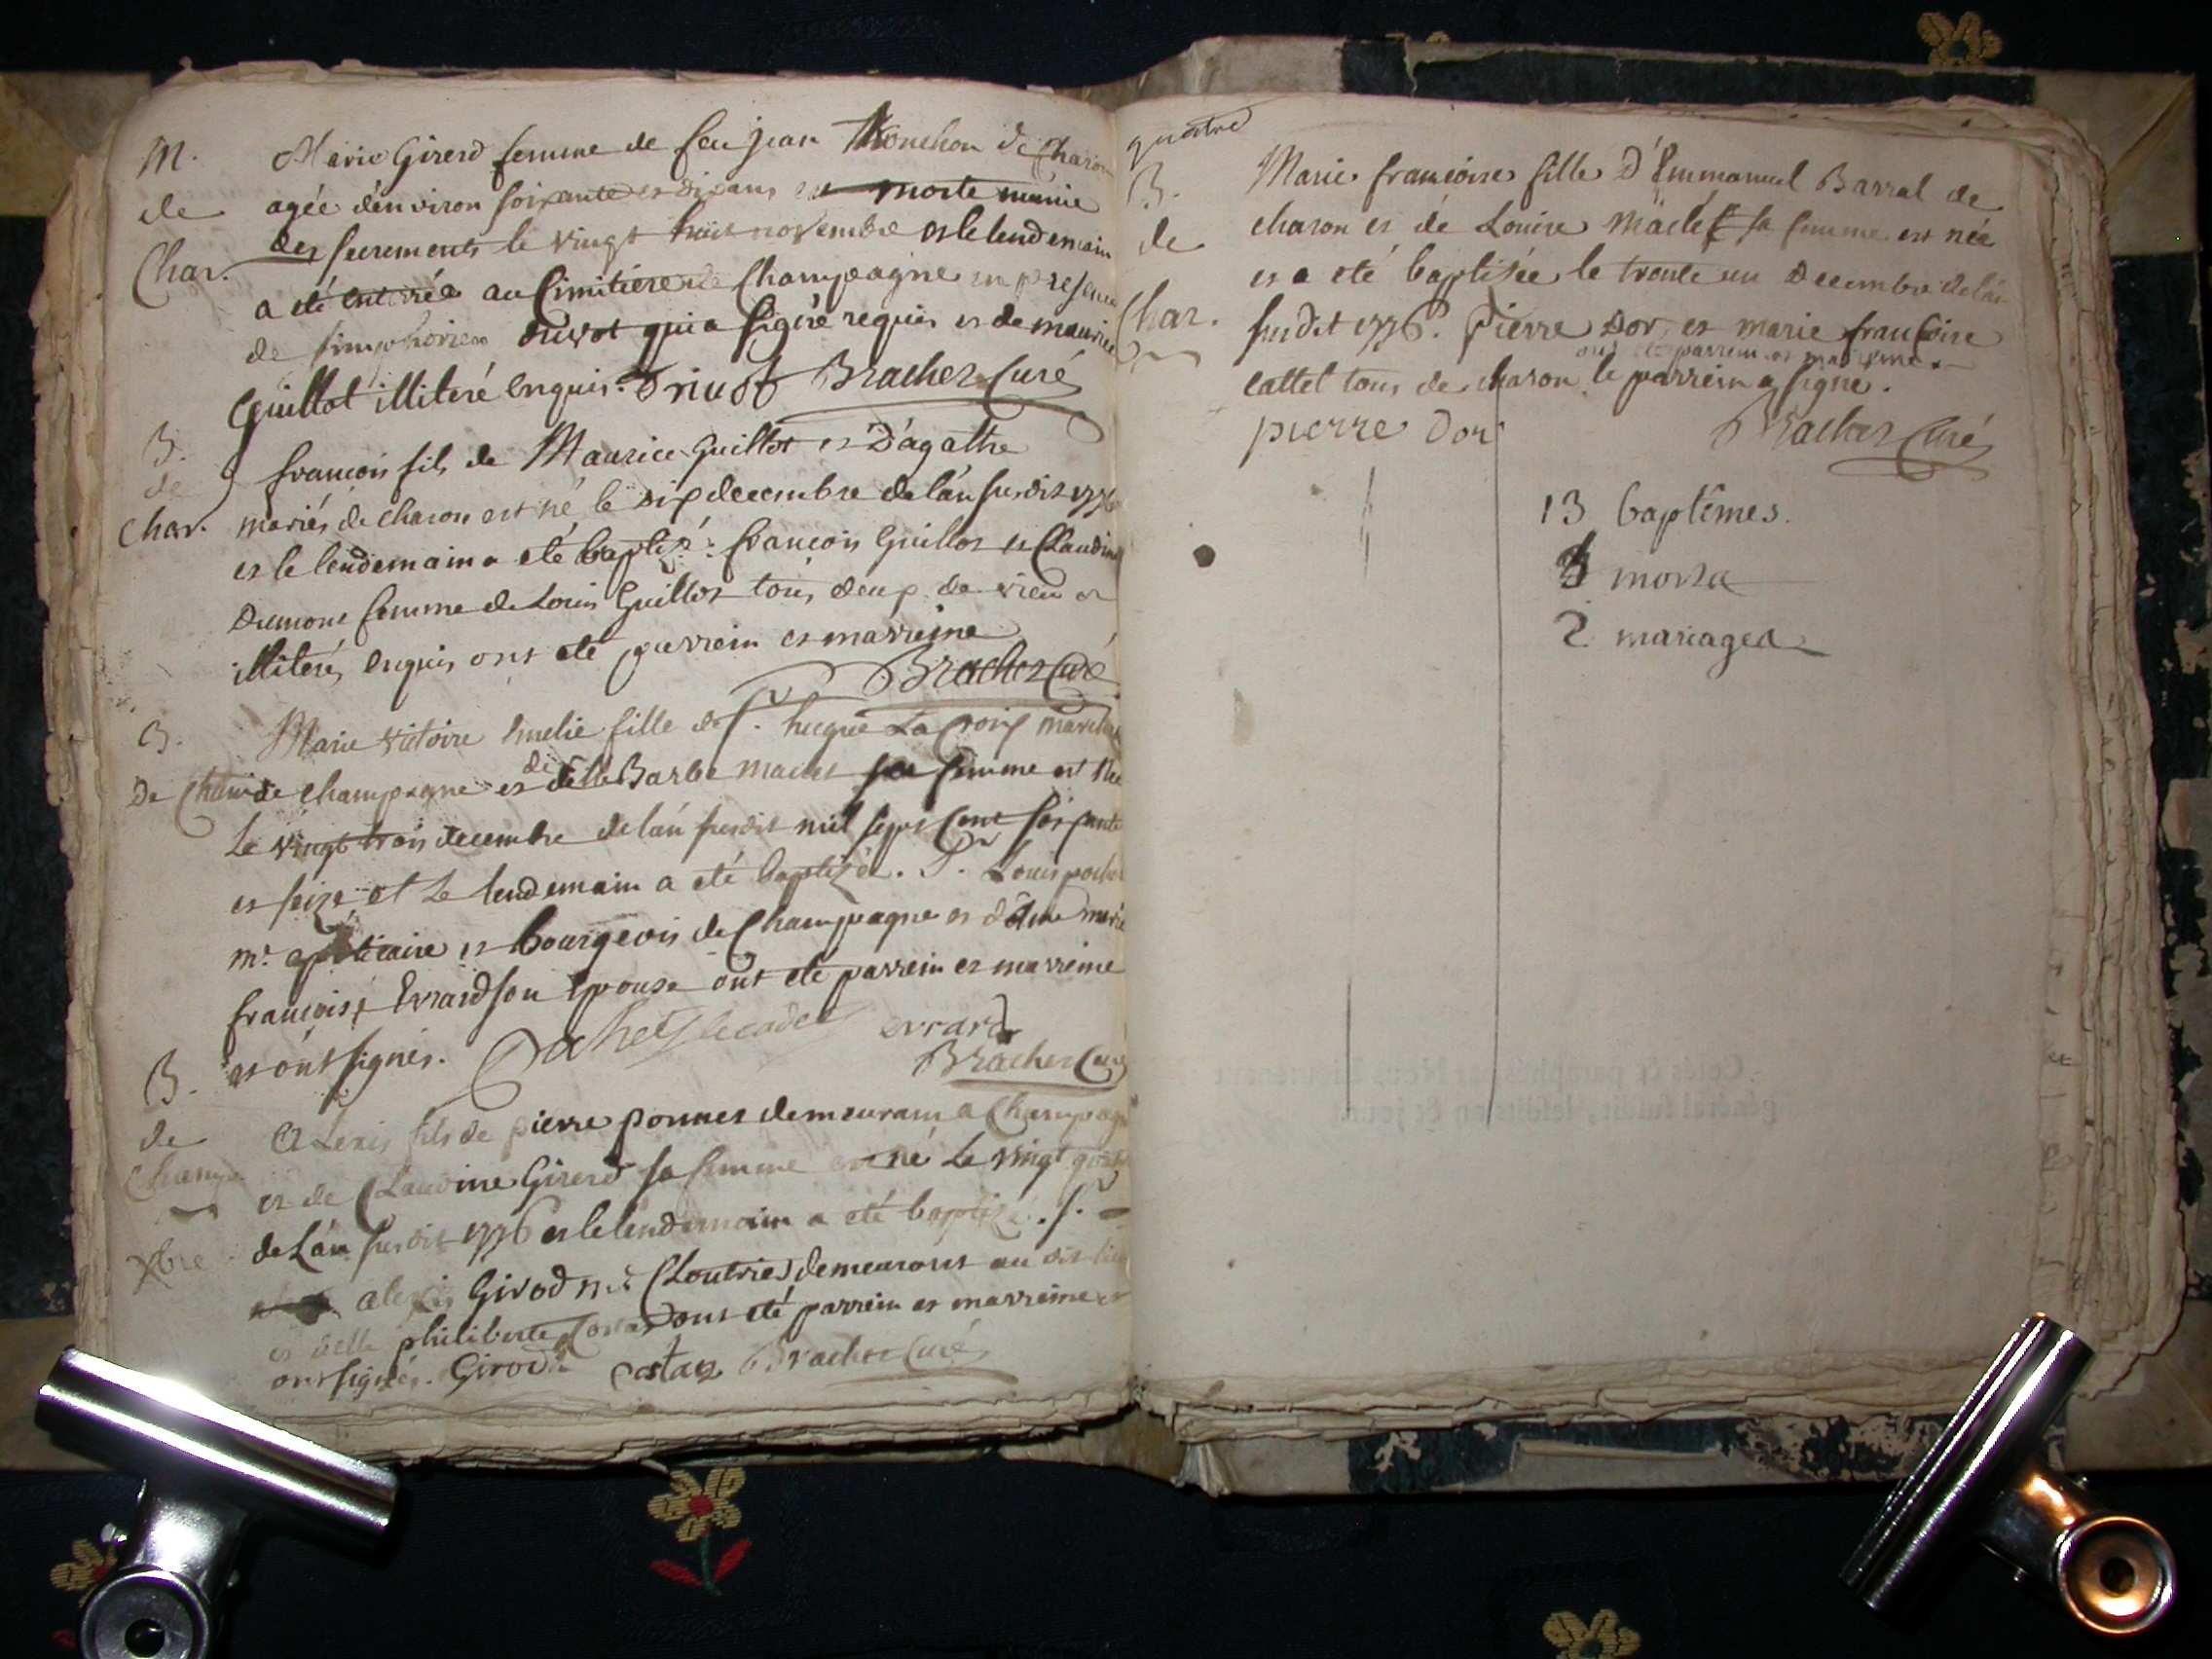 M.
de
Char.
Marie Girerd femme de feu jean de Charon
agée d'environ soixante et dix ans est morte munie
des secrements le vingt huit novembre et le lendemain
a été enterrée au Cimitiere de Champagne en presence
de simphorien qui a signé requis et de maurice
Guillot illiteré enquis. Bracher Curé
B.
de
Char.
francois fils de Maurice Guillot et D'agathe
mariés de charon est né le six decembre de l'an susdit 1776
et le lendemain a été baptisé. francois Guillot et Claudine
Dumont femme de Louis Guillot tous deux de vieu et
illiterés enquis ont eté parrein et marreine
Bracher Curé
B.
De Cham
Marie victoire Emelie fille de Sr. hugue La Croix march
de champagne et de delle Barbe sa femme est née
Le vingt trois decembre de l'an susdit mil sept cent soixante
et seize et Le lendemain a eté baptizée. Sr. Louis
mr. apoticaire et bourgeois de Champagne et dame marie
francoise Evrard son Epouse ont eté parrein et marreine
et ont signés. evrard
Bracher Curé
B.
de
Champ.
Xbre
Alexis fils de pierre ponnet demeurant a Champagne
et de Claudine Girerd sa femme est né Le vingt
de L'an susdit 1776 et le lendemain a été baptizé. Sr.
alexis Girod me Cloutrier demeurant au dit lieu
et delle philiberte Costaz ont eté parrein et marreine et
ont signés. Girod Costaz Bracher Curé
quatre
B.
de
Char.
Marie francoise fille D'Emmanuel Barral de
charon et de Louise sa femme est née
et a eté baptisée le trente un Decembre de l'an
susdit 1776. Pierre Dor et marie francoise
ont eté parrein et marreine
cattet tous de charon le parrein a signé.
pierre Dor Bracher Curé
13 baptêmes.
4 morts
2 mariages